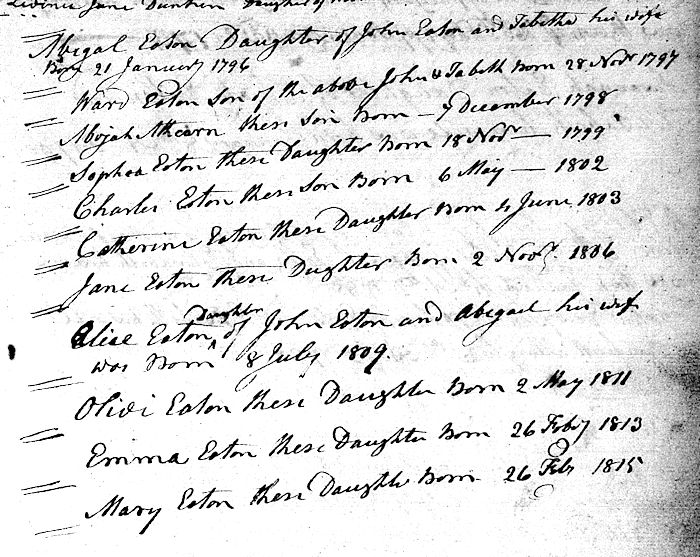 Jane Dunken Daughter of
Abigal Eaton Daughter of John Eaton and Tabetha his wife
Born 21 January 1796
Ward Eaton Son of the above John & Tabeth Born 28 Novr 1797
Abijah Athearn there Son Born – 7 December 1798
Sophea Eaton there Daughter Born 18 Novr — 1799
Charles Eaton there Son Born 6 May — 1802
Catherine Eaton there Daughter Born 4 June 1803
Jane Eaton there Dughter Born 2 Novr. 1806
Daughter
Elise Eaton ^ of John Eaton and Abigail his wife
was Born 8 July 1809.
Olivi Eaton there Daughter Born 2 May 1811
Emma Eaton there Daughter Born 26 Feby 1813
Mary Eaton there Daughter Born 26 Feby 1815